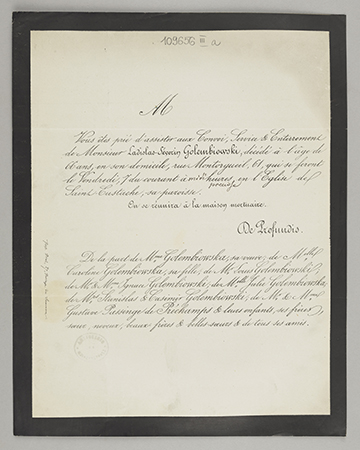 109656 III a
M
Vous êtes prié d'assister aux Convoi, Service & Enterrement
de Monsieur Ladislas-Séverin Golembiowski, décédé à l'âge de
60 ans, en son domicile, rue Montorgueil, 61, qui se feront
le Vendredi, 7 du courant à midi heures, en l'Eglise de
précise
Saint Eustache, sa paroisse.
On se réunira à la maison mortuaire.
De Profundis.
De la part de Mme Golembiowska, sa veuve, de Mlle
Caroline Golembiowska, sa fille, de Mr Louis Golembiowski,
de Mr & Mme Ignace Golembiowski, de Mlle Julie Golembiowska,
de Mrs Stanislas & Casimir Golembiowski, de Mr & Mme
Gustave Passenge de Préchamps & leurs enfants, ses frères
sœur, neveux, beaux frères & belles sœurs & de tous ses amis.